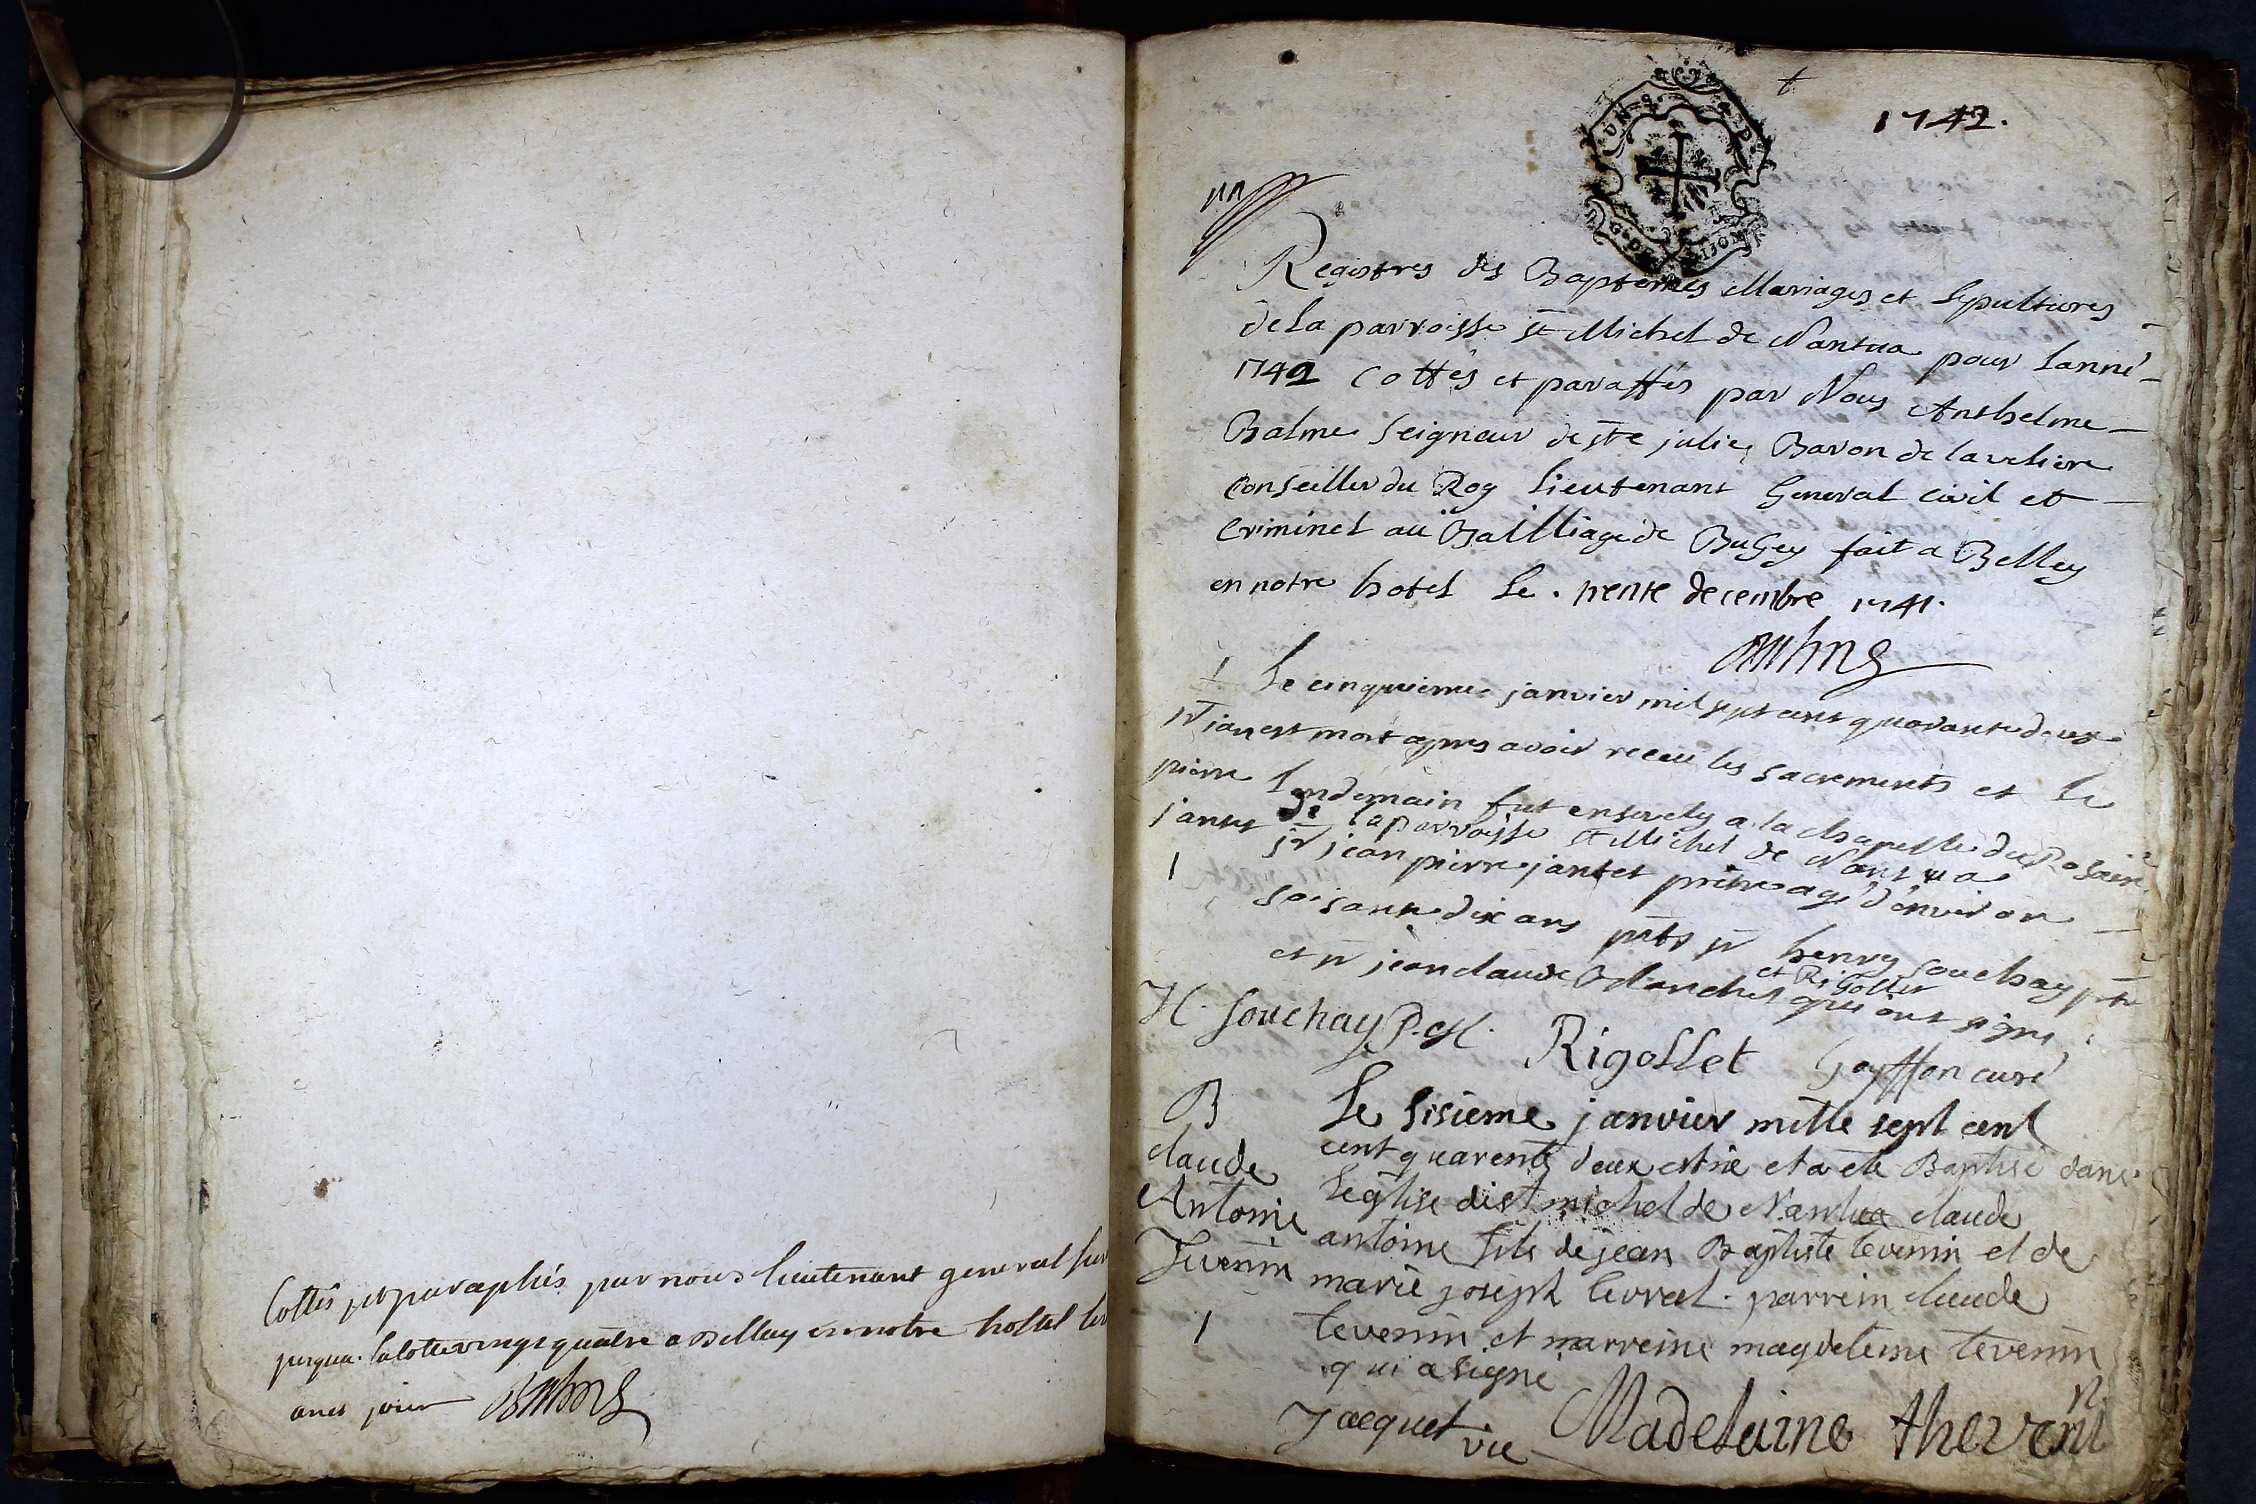 Cottés et paraphés par nous lieutenant general
jusqua la cotte vingt quatre a Belley en notre hostel les
an et jour
1742.
Registres des Baptemes Mariages et Sepultures
de la parroisse st Michel de Nantua pour lanné
1742 Cottés et paraffés par Nous Anthelme
Balme Seigneur de ste julie, Baron de
Conseiller du Roy Lieutenant General civil et
Criminel au Bailliage de Bugey fait a Belley
en notre hotel Le . trente decembre 1741.
1 Le cinquieme janvier mil sept cent quarante deux
sr jean est mort apres avoir receu les sacrements et le
pierre lendemain fut ensevely a la chapelle du Rosaire
de la parroisse st Michel de Nantua
jantet sr jean pierre jantet prêtre agé d'environ
1 soisante dix ans pnts sr henry souchay ptre
et Rigollet
et sr jean claude Blanchet qui ont signé
H. Souchay P. Rigollet Goyffon curé
B Le sisieme janvier mille sept cent
claude cent quarente deux est né et a ete Baptisé dans
Antoine Leglise de st michel de Nantua claude
Tevenin antoine fils de jean Baptiste tevenin et de
marie joseph levrat. parrein claude
1 tevenin et marreine magdeleine tevenin
qui a signé
Jacquet vic Madelaine thevenin